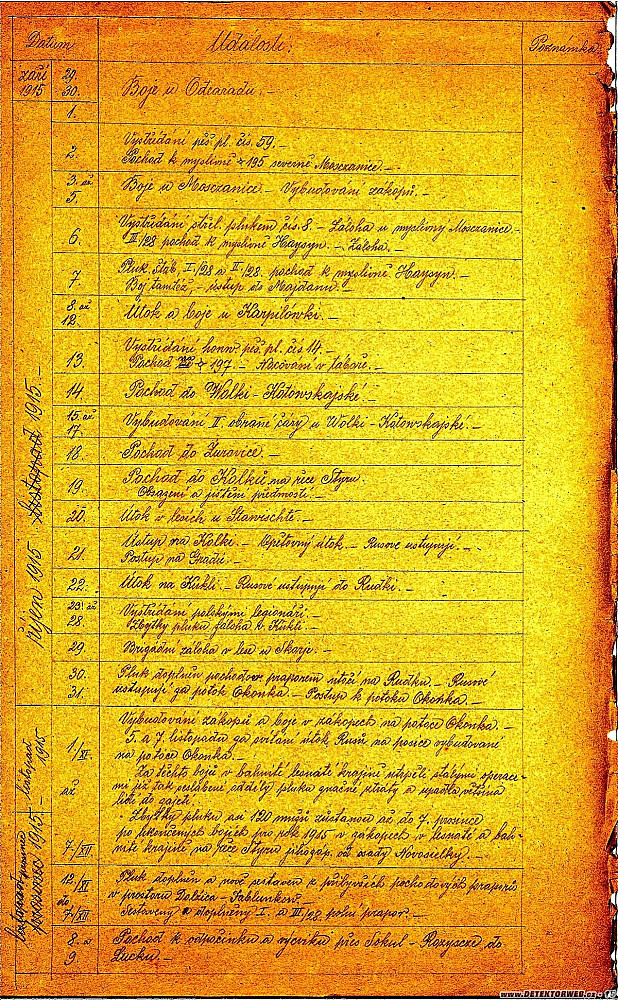 Datum Událostí: Poznámka:
září 1915
29.
30. Boje u Odcaradu. -
1.
Vystřídání pěš. pl. čís. 59. -
2. Pochod k myslivně 195 severně Mosczanice. -
3. až
5. Boje u Mosczanice. - Vybudování zákopů. -
Vystřídání střel. plukem čís. 8. - Záloha u myslivny Mosczanice -
6. III/28 pochod k myslivně Haysyn. - Záloha.
Pluk. štáb, I./28 a II/28. pochod k myslivně Haysyn. -
7. Boj tamtéž, - ústup do Majdanu. -
8. až
12. Útok a boje u Karpilówki. -
Vystřídání honv. pěš. pl. čís 14. -
13. Pochod 197. - Nocování v táboře. -
14. Pochod do Wolki - Kotowskajské. -
15. až
17. Vybudování II. obranné čáry u Wolki - Kotowskajské. -
18. Pochod do Żuravice. -
Pochod do Kolků na řece Styru.
19. Obsazení a jištění předmostí. -
20. Útok v lesích u Stawischtě. -
Ústup na Kolki. - Opětovný útok. - Rusové ustupují. -
21. Postup na Gradu. -
22. Útok na Kukli. - Rusové ustupují do Rudki. -
23. až
28 Vystřídání polskými legionáři. -
Zbytky pluku záloha v. Kukli. -
29 Brigádní záloha v lese u
30. Pluk doplněn pochodov. praporem útočí na Rudku. - Rusové
31. ustupují za potok Okonka. - Postup k potoku Okońka. -
říjen 1915 listopad 1915. -
Vybudování zákopů a boje v zákopech na potoce Okonka. -
1/XI. 5. a 7. listopadu za svítání útok Rusů na posice vybudované
na potoce Okonka. -
až Za těchto bojů v bahnité lesnaté krajině utrpěli stálými operace-
mi již tak seslabené oddíly pluku značné ztráty a upadla většina
lidí do zajetí. -
Zbytky pluku asi 120 mužů zůstanou až do 7. prosince
po skončených bojích pro rok 1915 v zákopech v lesnaté a bah-
7./XII nité krajině na řece Styru jihozáp. od osady Novosielky. -
listopad prosinec listopad
prosinec 1915. - 1915
12./XI Pluk doplněn a nově sestaven z přibyvších pochodových praporů
do v prostoru - Jablunkow.
7/XII. Sestavený a doplněný I. a III/28 polní prapor. -
8. a Pochod k odpočinku a výcviku přes Sokul - Rozyscze do
9 Lucku. -
www.DETEKTORWEB.cz